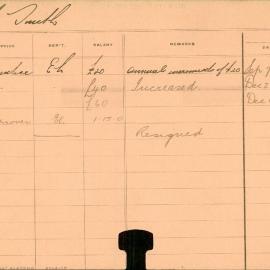 Smith
DEP'T. SALARY REMARKS
Eh £20 annual increments of £20 Sep
£40 Increased Dec
£60 Dec
El. 1-15-0
Resigned